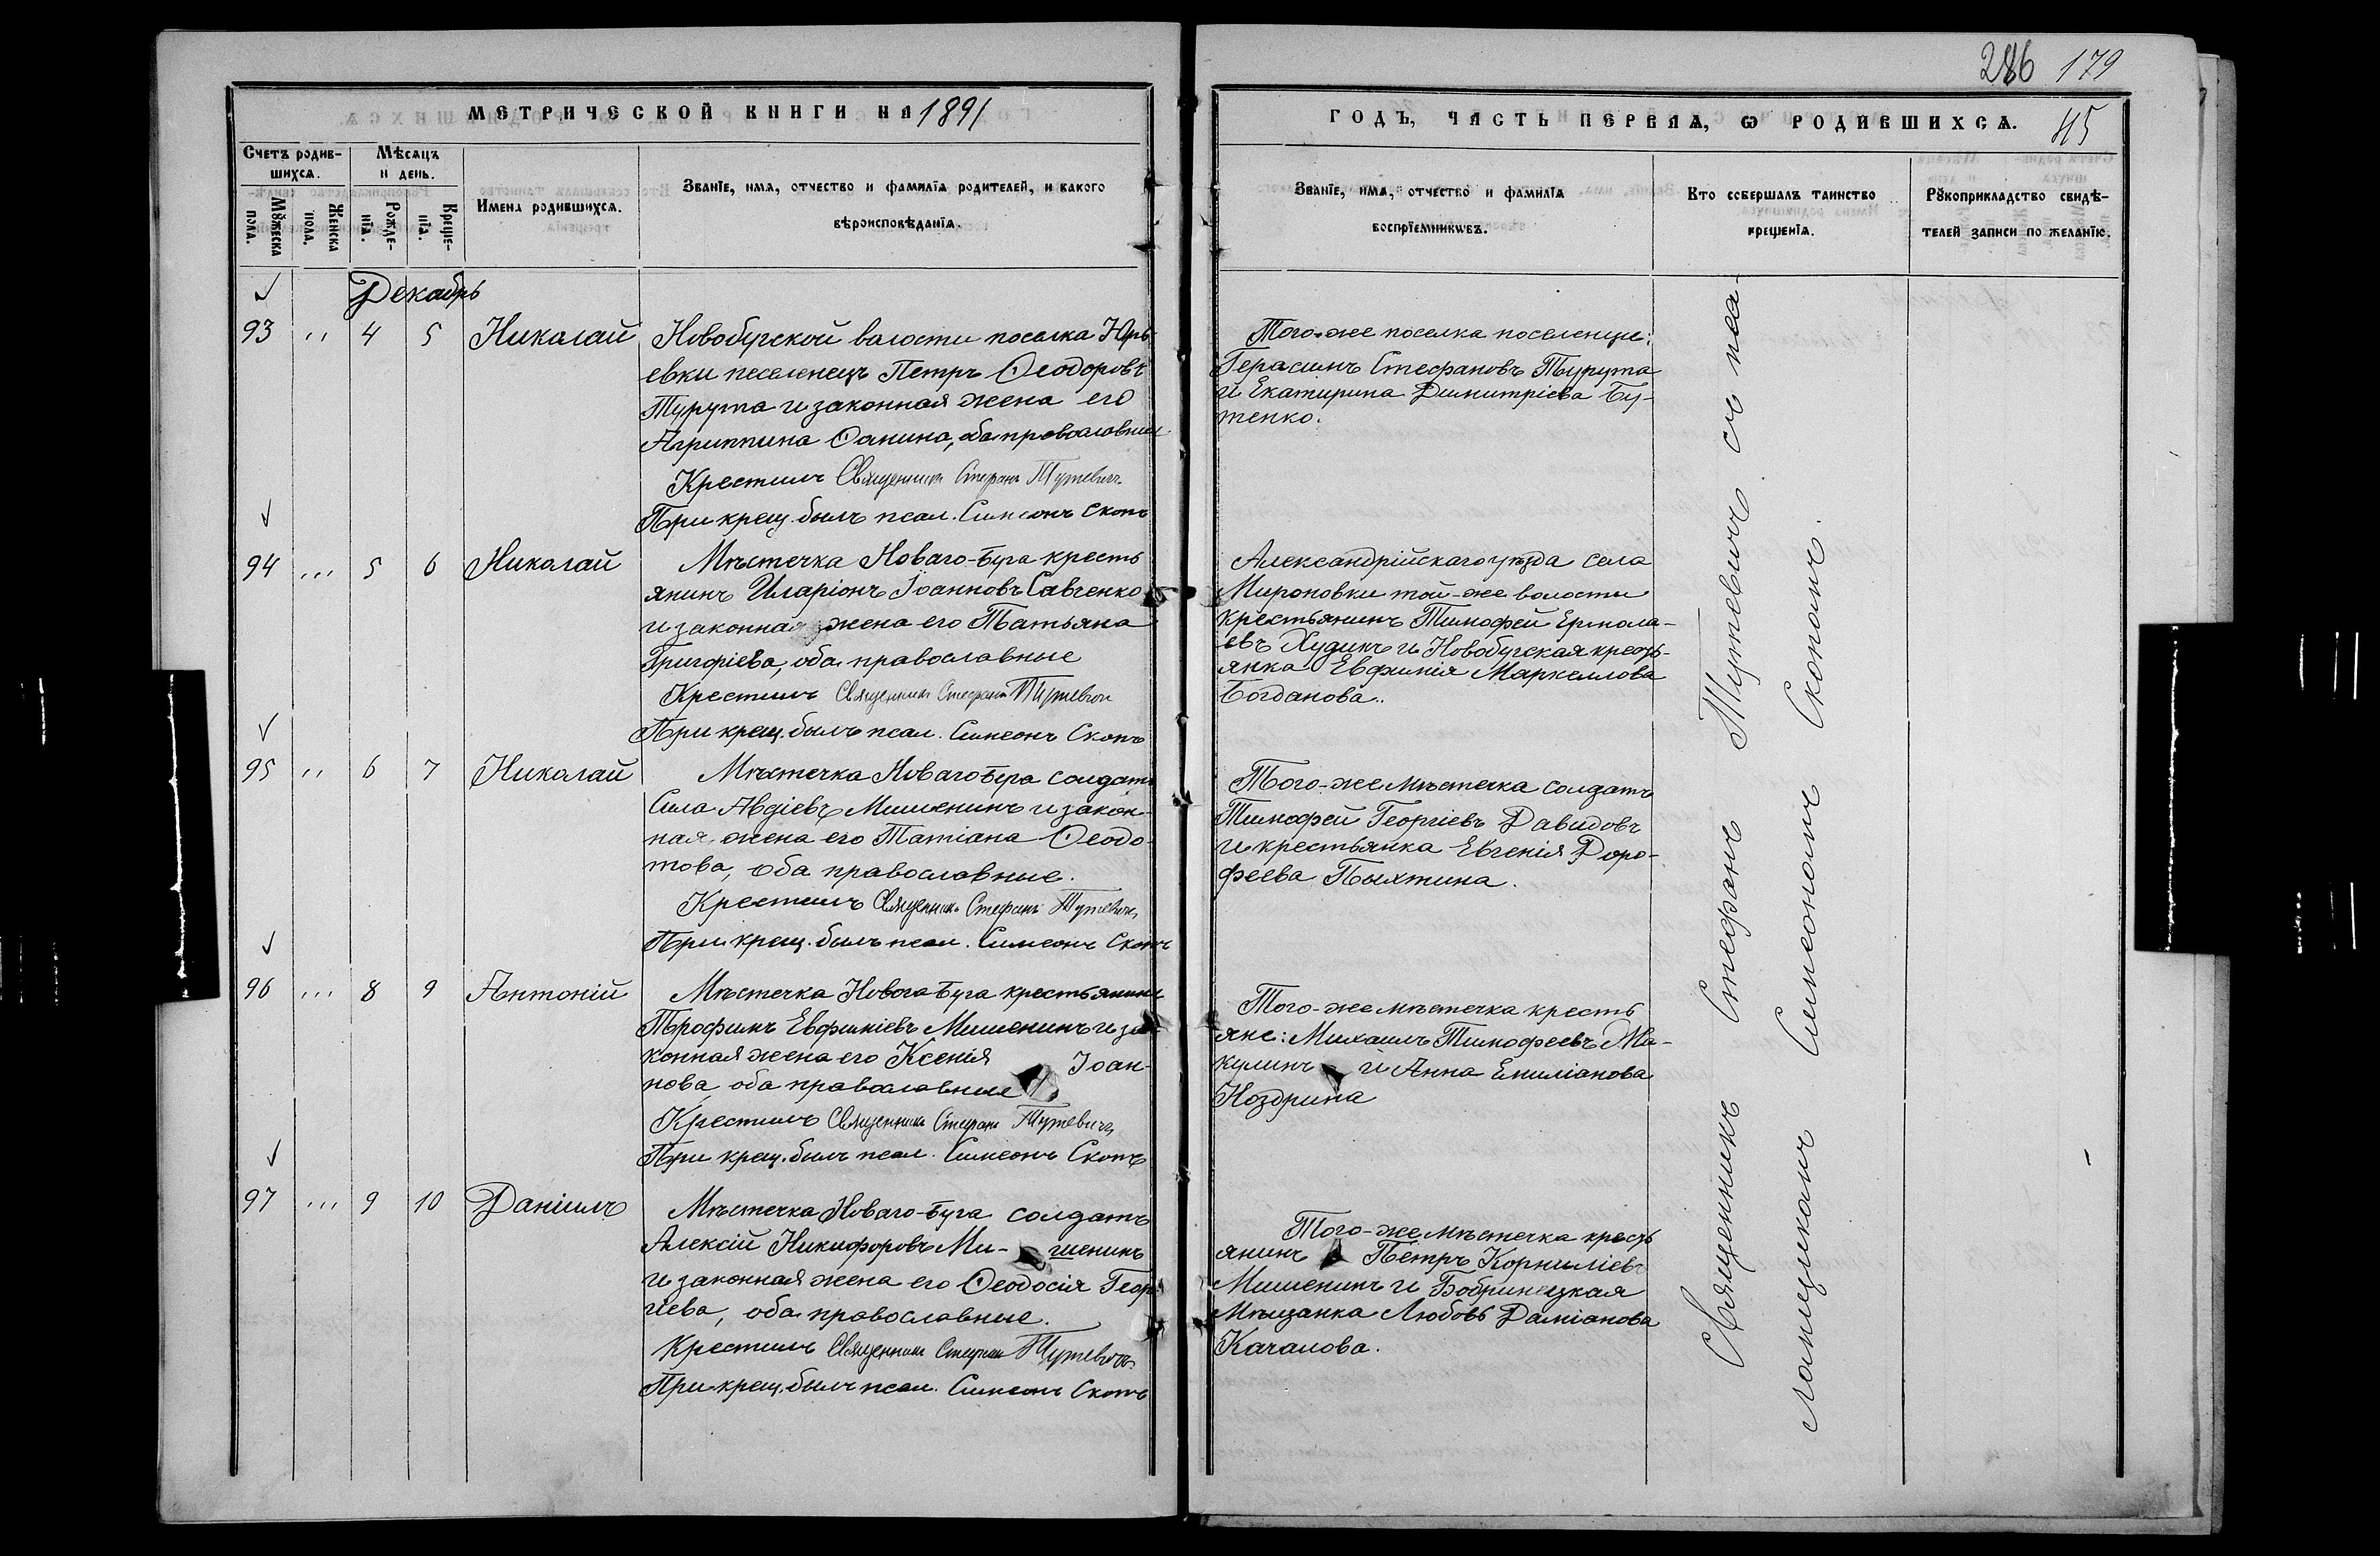 286 179
МЕТРИЧЕСКОЙ КНИГИ НА 1891
ГОДЪ, ЧАСТЬ ПЕРВАЯ, Ѡ РОДИВШИХСѦ. 45
Счетъ родив-
шихсѧ.
Мѣсяцъ
и день.
Мꙋжеска
пола.
Женска
пола.
Рожде-
нїа.
Креще-
нїа.
Имена родившихсѧ.
Званїе, имѧ, отчество и фамилїа родителей, и какого
вѣроисповѣданїа.
Званїе, имѧ, отчество и фамилїа
воспрїемникѡвъ.
Кто совершалъ таинство
крещенїа.
Рꙋкоприкладство свидѣ-
телей записи по желанїю.
Декабрь
93 " 4 5 Николай
Новобугской волости поселка Юрь-
евки поселенецъ Петръ Ѳеодоровъ
Турута и законная жена его
Агриппина Ѳомина, оба православные
Крестилъ Священникъ Стефанъ Тутевичъ
При крещ. былъ псал. Симеонъ Скопъ
Того-же поселка поселенцы:
Герасимъ Стефановъ Турута
и Екатерина Димитріева Бу-
тенко.
94 ... 5 6 Николай
Мѣстечка Новаго-Буга кресть
янинъ Иларіонъ Іоанновъ Савченко
и законная жена его Татьяна
Григоріева, оба православные
Крестилъ Священникъ Стефанъ Тутевичъ
При крещ. былъ псал. Симеонъ Скопъ
Александрійскаго уѣзда села
Мироновки той-же волости
крестьянинъ Тимофей Ермола-
евъ Худинъ и Новобугская кресть-
янка Евфимія Маркеллова
Богданова.
95 " 6 7 Николай
Мѣстечка Новаго Буга солдатъ
Сила Авдіевъ Мишенинъ и закон-
ная жена его Татіана Ѳеодо-
това, оба православные.
Крестилъ Священникъ Стефанъ Тутевичъ
При крещ. былъ псал. Симеонъ Скопъ
Того-же мѣстечка солдатъ
Тимофей Георгіевъ Давидовъ
и крестьянка Евгенія Доро-
феева Пыхтина.
96 ... 8 9 Антоній
Мѣстечка Новаго Буга крестьянинъ
Трофимъ Евфиміевъ Мишенинъ и за-
конная жена его Ксенія Іоан-
нова, оба православные
Крестилъ Священникъ Стефанъ Тутевичъ
При крещ. былъ псал. Симеонъ Скопъ
Того-же мѣстечка кресть
яне: Михаилъ Тимофеевъ Ма-
кулинъ и Анна Емиліанова
Ноздрина
97 ... 9 10 Даніилъ
Мѣстечка Новаго-Буга солдатъ
Алексій Никифоровъ Ми-шенинъ
и законная жена его Ѳеодосія Геор-
гіева, оба православные.
Крестилъ Священникъ Стефанъ Тутевичъ
При крещ. былъ псал. Симеонъ Скопъ
Того-же мѣстечка кресть
янинъ Петръ Корниліевъ
Мишенинъ и Бобринецкая
Мѣщанка Любовь Даміанова
Качалова.
Священникъ Стефанъ Тутевичъ съ пса-
ломщикомъ Симеономъ Скопомъ.